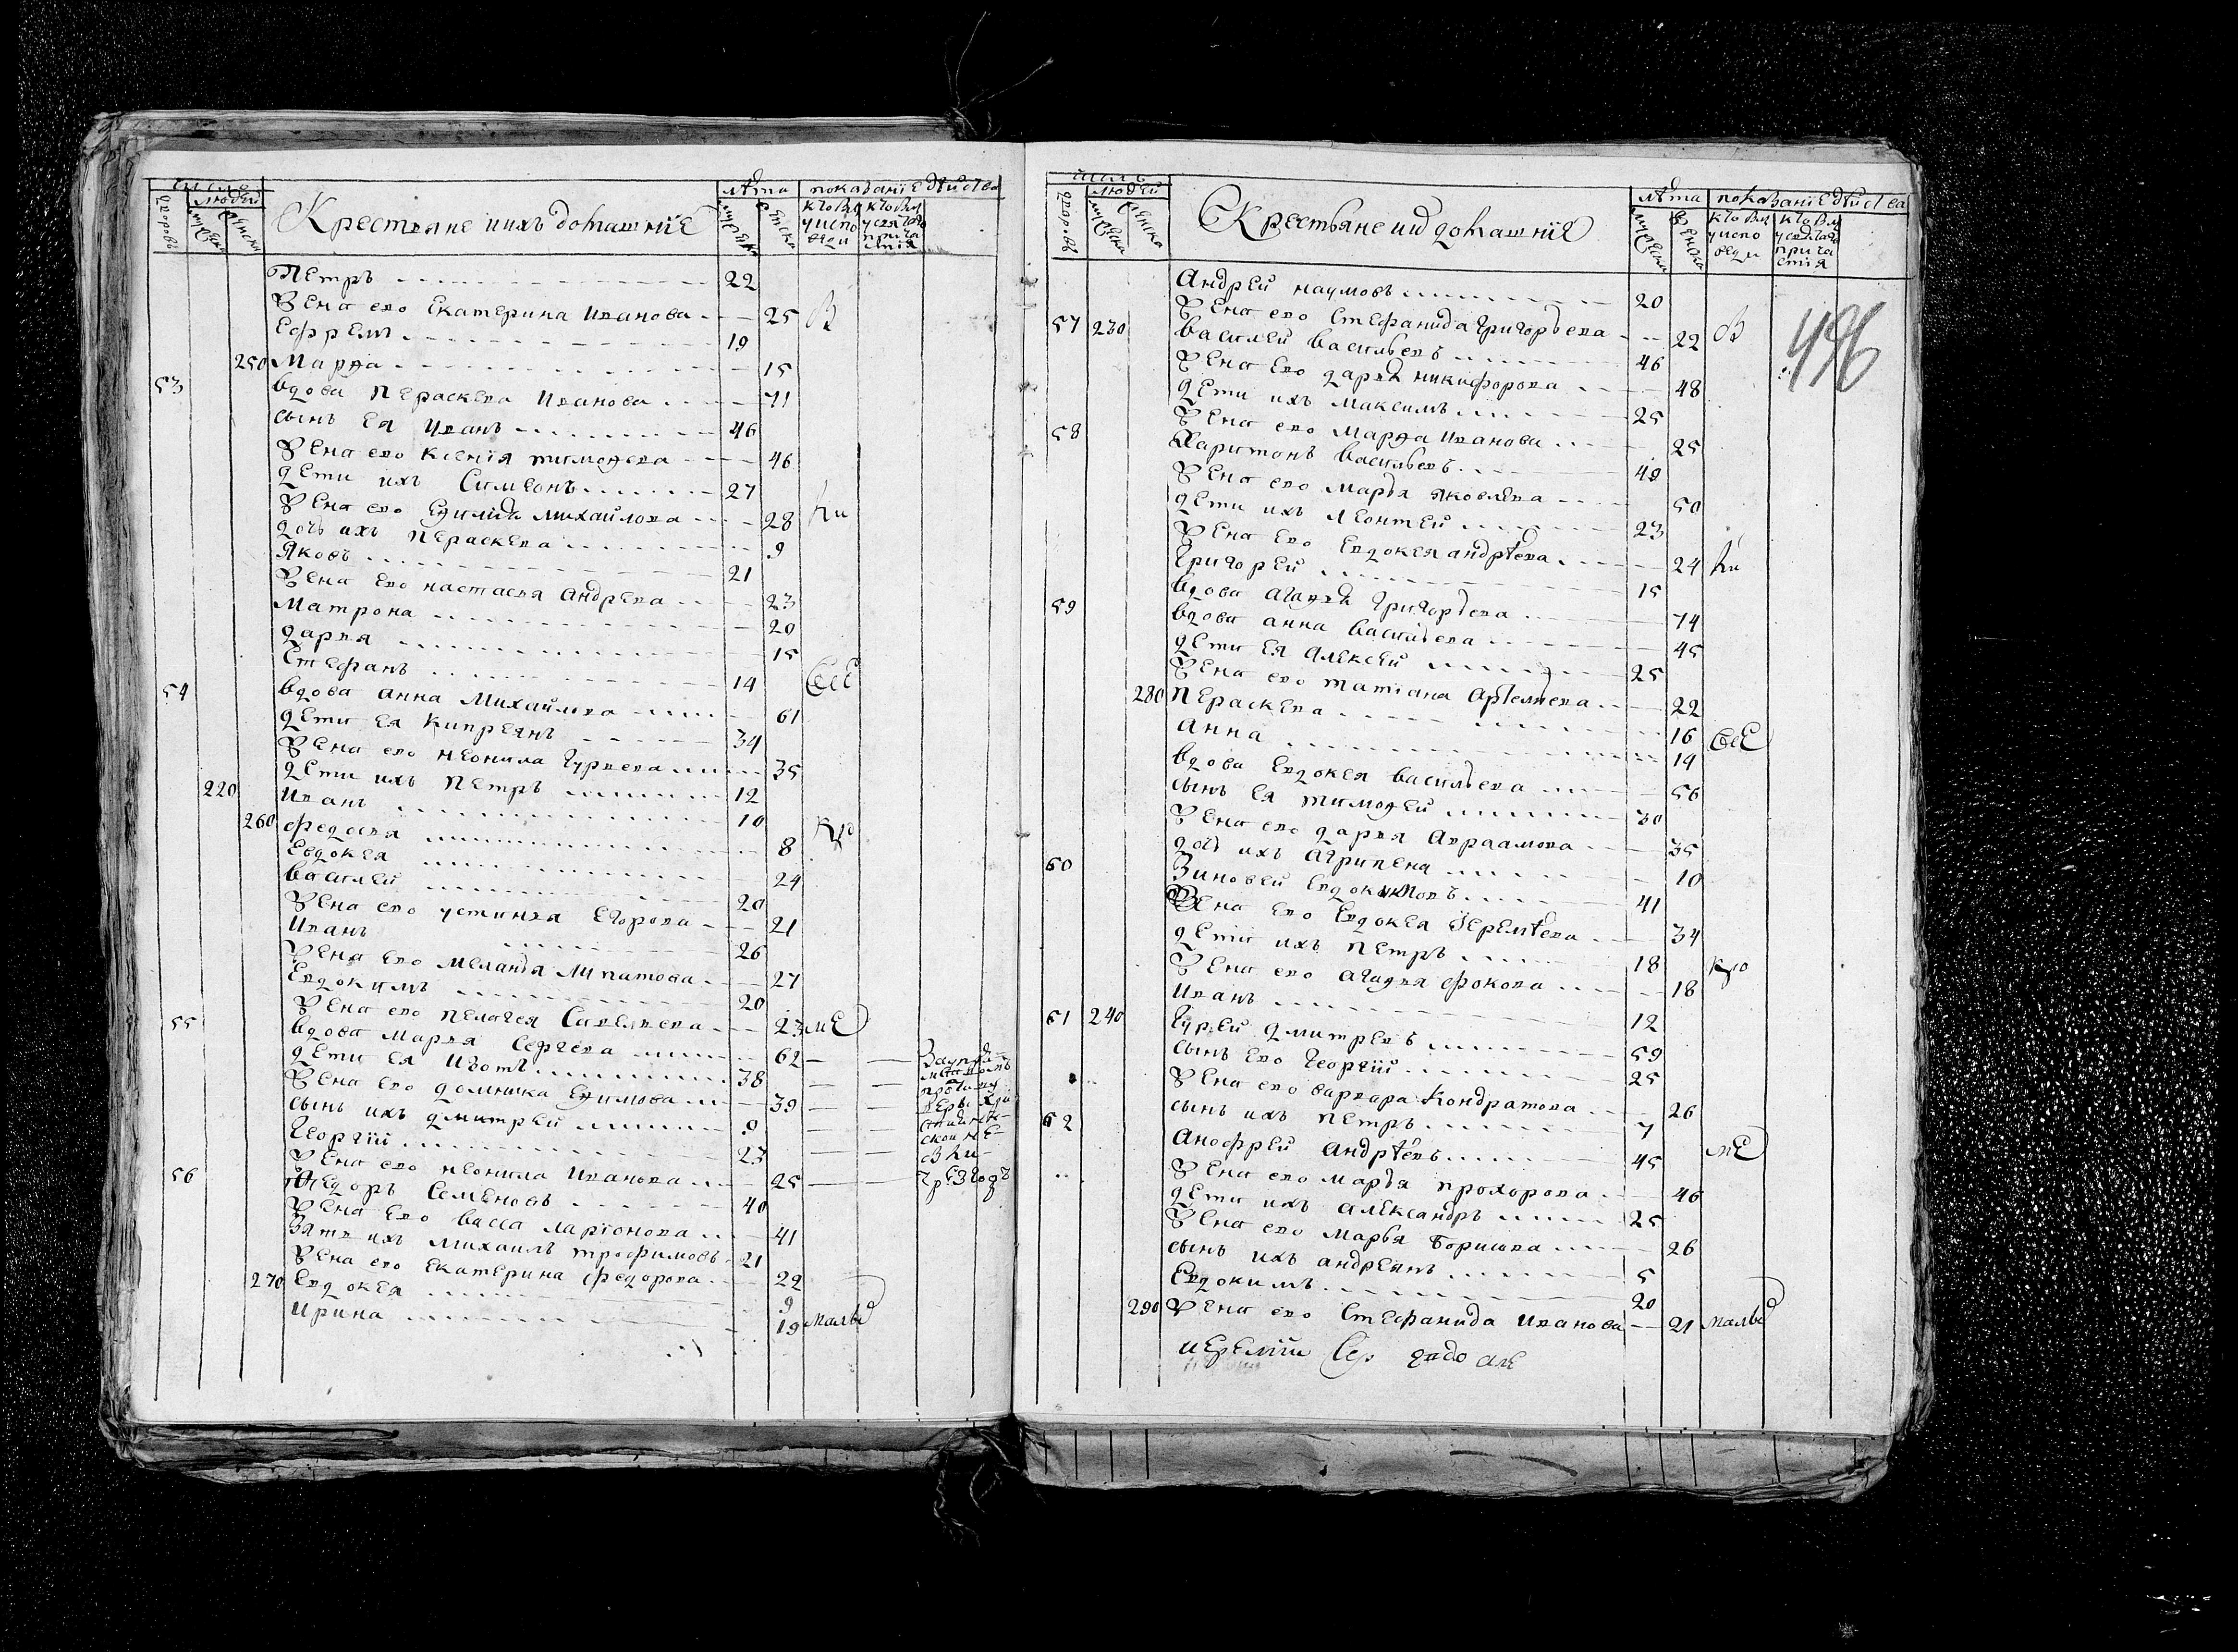 Число
людей
лѣта показаніе дѣйства
дворовъ мужеска женска Крестьяне иихъ домашніе мужеска женска кто былъ у исповѣди кто былъ у святаго причастія
Петръ 22
Жена его Екатерина Иванова 25 В
Ефремъ 19
250 Марѳа 15
53 вдова Пераскева Иванова 71
сынъ ея Иванъ 46
Жена его Ксенія тимоѳева 46
дети ихъ Симеонъ 27
Жена его Еѳимїа михайлова 28 Ки
дочь ихъ Пераскева 9
Яковъ 21
Жена его настасья Андрева 23
Матрона 20
дарья 15
Стефанъ 14
54 вдова анна Михайлова 61
дети ея Кипреянъ 34
Жена его неонила Гурьева 35
дети ихъ Петръ 12
220 Иванъ 10
260 федосья 8
Евдокея 24
василей 20
Жена его устинья Егорова 21
Иванъ 26
Жена его меланья липатова 27
Евдокимъ 20
Жена его пелагея Савельева 23 ме
55 вдова марья Сергева 62
дети ея Изотъ 38
Жена его домника Еѳимова 39
сынъ ихъ дмитрей 9
Георгїй 23
Жена его неонила Иванова 25
56 Ѳедоръ Семеновъ 40
Жена его васса ларїонова 41
Зять ихъ михаилъ трофимовъ 21
Жена его Екатерина федорова 22
270 Евдокея 9
Ирина 19 мальд
число
людей
лѣта показанїе дѣйства
дворовъ мужеска женска Крестьяне иид домашнїе мужеска женска кто былъ у исповеди кто былъ у святаго причастїя
496
Андрей наумовъ 20
Жена его Стефанида Григорьева 22 В
57 230 василей васильевъ 46
Жена его дарья никифорова 48
дети ихъ максимъ 25
Жена его Марѳа Иванова 25
58 Харитонъ васильевъ 49
Жена его марья яковлева 50
дети ихъ леонтей 23
Жена его Евдокея андрѣева 24 Ки
Григорей 15
59 вдова агаѳья Григорьева 74
вдова анна васильева 45
дети ея Алексей 25
Жена его татїана Артемьева 22
280 Пераскева 16
Анна 14
вдова Евдокея васильева 56
сынъ ея тимоѳей 30
Жена его дарья Авраамова 35
дочь ихъ Агрипена 10
60 Зиновей Евдокимовъ 41
Жена его Евдокея Іеремѣева 34
дети ихъ Петръ 18
Жена его агаѳья фокова 18
Иванъ 12
61 240 Гурей дмитревъ 59
сынъ его Георгїй 25
Жена его варвара Кондратова 26
сынъ ихъ Петръ 7
62 Анофрей Андрѣевъ 45 ме
Жена его марья прохорова 46
дети ихъ александръ 25
Жена его марья Борисова 26
сынъ ихъ андреянъ 5
Евдокимъ 20
290 Жена его Стефанида Иванова 21 мальд
иеремїй